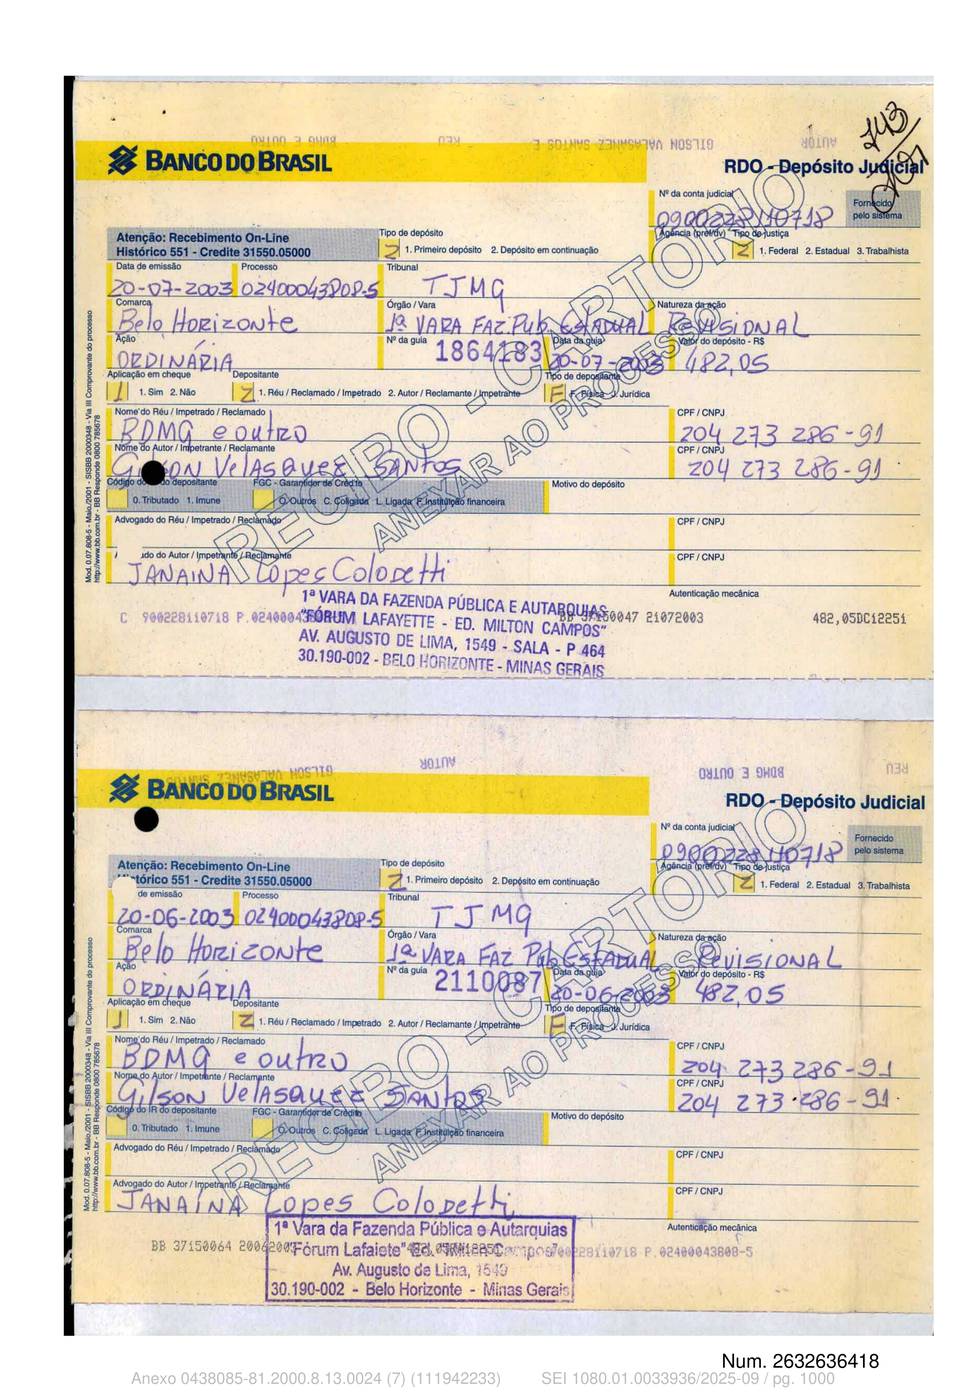 743
BDMG E OUTRO
REU
GILSON VALASANEZ SANTOS E
AUTOR
BANCO DO BRASIL
RDO - Depósito Judicial
Nº da conta judicial
0900228110718
Fornecido
pelo sistema
Atenção: Recebimento On-Line
Histórico 551 - Credite 31550.05000
Tipo de depósito
2 1. Primeiro depósito 2. Depósito em continuação
Agência (pref/dv) Tipo de justiça
2 1. Federal 2. Estadual 3. Trabalhista
Data de emissão Processo Tribunal
20-07-2003 02400043808-5 TJMG
Comarca Órgão / Vara Natureza da ação
Belo Horizonte 1ª VARA FAZ. Pub. ESTADUAL REVISIONAL
Ação Nº da guia Data da guia Valor do depósito - R$
ORDINÁRIA 1864183 20-07-2003 482,05
Aplicação em cheque Depositante Tipo de depositante
1 1. Sim 2. Não 2 1. Réu / Reclamado / Impetrado 2. Autor / Reclamante / Impetrante F F. Física J. Jurídica
Nome do Réu / Impetrado / Reclamado CPF / CNPJ
BDMG e outro 204 273 286-91
Nome do Autor / Impetrante / Reclamante CPF / CNPJ
Gilson Velasquez Santos 204 273 286-91
Código do depositante FGC - Garantidor de Crédito Motivo do depósito
0. Tributado 1. Imune O. Outros C. Coligada L. Ligada F. Instituição financeira
Advogado do Réu / Impetrado / Reclamado CPF / CNPJ
do do Autor / Impetrante / Reclamante CPF / CNPJ
JANAINA Lopes Colodetti
Autenticação mecânica
C 900228110718 P.02400043808 BB 37150047 21072003 482,05DC12251
1ª VARA DA FAZENDA PÚBLICA E AUTARQUIAS
"FÓRUM LAFAYETTE - ED. MILTON CAMPOS"
AV. AUGUSTO DE LIMA, 1549 - SALA - P 464
30.190-002 - BELO HORIZONTE - MINAS GERAIS
RECIBO - CARTORIO
ANEXAR AO PROCESSO
Mod. 0.07.808-5 - Maio./2001 - SISBB 2000348 - Via III Comprovante do processo
http://www.bb.com.br - BB Responde 0800 785678
GILSON VALASANEZ SANTOS
AUTOR
BDMG E OUTRO
REU
BANCO DO BRASIL
RDO - Depósito Judicial
Nº da conta judicial
0900228110718
Fornecido
pelo sistema
Atenção: Recebimento On-Line
tórico 551 - Credite 31550.05000
Tipo de depósito
2 1. Primeiro depósito 2. Depósito em continuação
Agência (pref/dv) Tipo de justiça
2 1. Federal 2. Estadual 3. Trabalhista
de emissão Processo Tribunal
20-06-2003 02400043808-5 TJMG
Comarca Órgão / Vara Natureza da ação
Belo Horizonte 1ª VARA FAZ Pub ESTADUAL REVISIONAL
Ação Nº da guia Data da guia Valor do depósito - R$
ORDINÁRIA 2110087 20-06-2003 482,05
Aplicação em cheque Depositante Tipo de depositante
1 1. Sim 2. Não 2 1. Réu / Reclamado / Impetrado 2. Autor / Reclamante / Impetrante F F. Física J. Jurídica
Nome do Réu / Impetrado / Reclamado CPF / CNPJ
BDMG e outro 204 273 286-91
Nome do Autor / Impetrante / Reclamante CPF / CNPJ
Gilson Velasquez Santos 204 273 286-91
Código do IR do depositante FGC - Garantidor de Crédito Motivo do depósito
0. Tributado 1. Imune O. Outros C. Coligada L. Ligada F. Instituição financeira
Advogado do Réu / Impetrado / Reclamado CPF / CNPJ
Advogado do Autor / Impetrante / Reclamante CPF / CNPJ
JANAÍNA Lopes Colodetti
Autenticação mecânica
BB 37150064 20062003 900228110718 P.02400043808-5
1ª Vara da Fazenda Pública e Autarquias
"Fórum Lafaiete" Ed. Milton Campos
Av. Augusto de Lima, 1549
30.190-002 - Belo Horizonte - Minas Gerais
RECIBO - CARTORIO
ANEXAR AO PROCESSO
Mod. 0.07.808-5 - Maio./2001 - SISBB 2000348 - Via III Comprovante do processo
http://www.bb.com.br - BB Responde 0800 785678
Num. 2632636418
Anexo 0438085-81.2000.8.13.0024 (7) (111942233) SEI 1080.01.0033936/2025-09 / pg. 1000